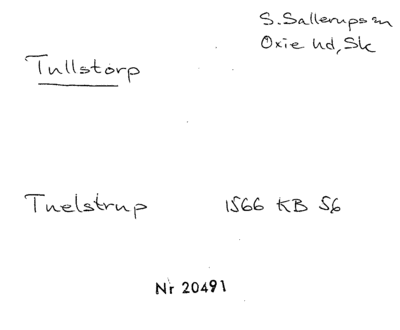 S. Sallerups sn
Oxie hd, Sk
Tullstorp
Tuelstrup 1566 KB 56
Nr 20491